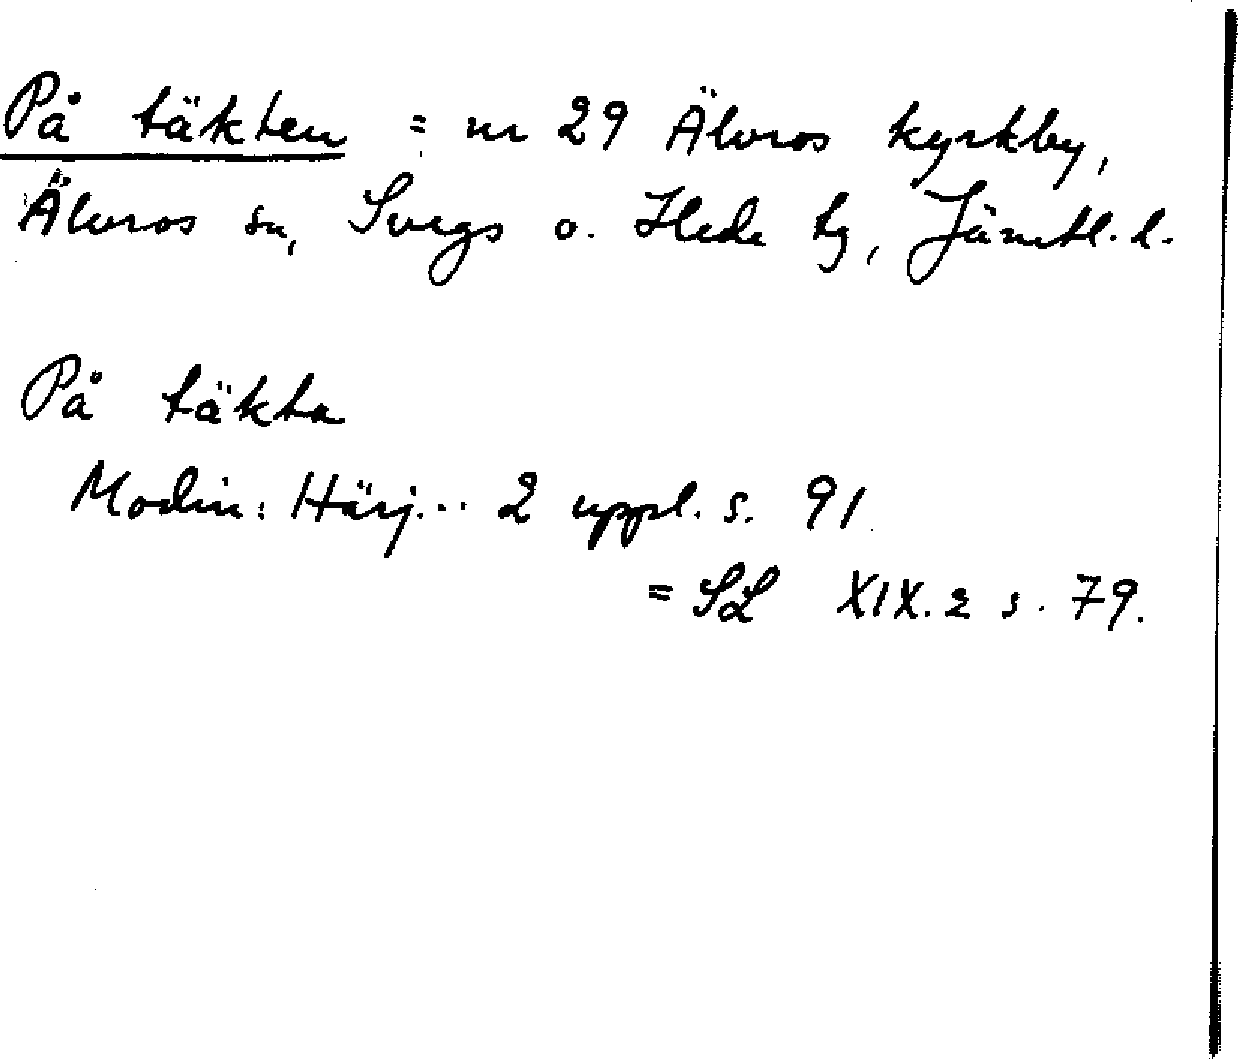 På täkten = nr 29 Älvros kyrkby,
Älvros sn, Svegs o. Hede tg, Jämtl. l.
På täkta
Modin: Härj... 2 uppl. s. 91
= SL XIX.2 s. 79.